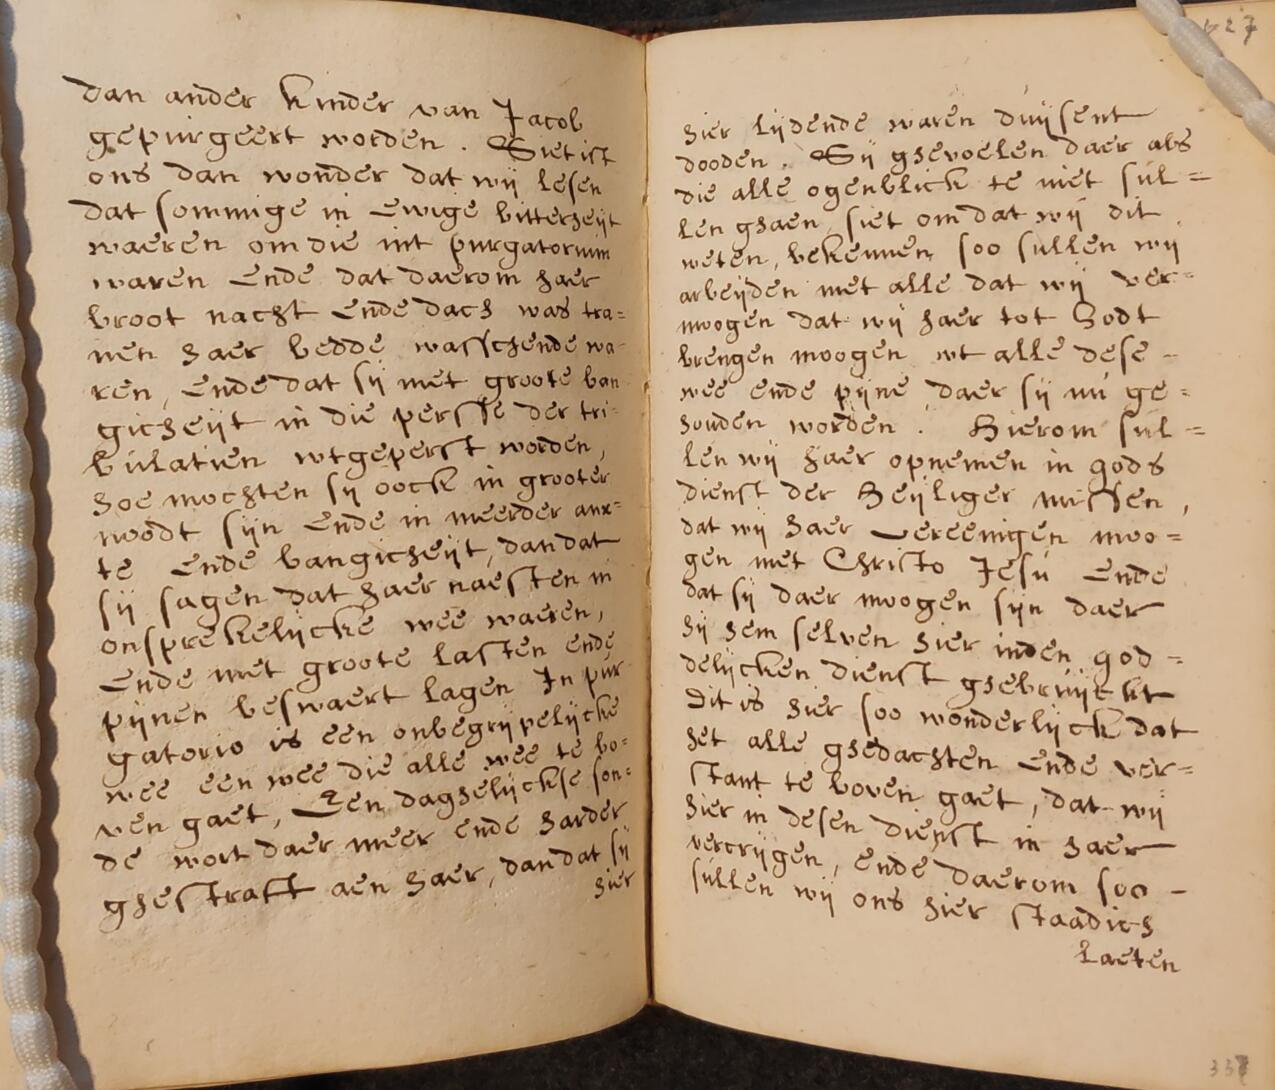 dan ander kinder van Jacob
gepurgeert worden. Siet ist
ons dan wonder dat wij lesen
dat sommige in Ewige bitterheijt
waeren om die int purgatorium
waren Ende dat daerom haer
broot nacht Ende dach was tra=
nen haer bedde wasschende wa-
ren, Ende dat sij met groote ban
gicheijt in die persse der tri-
bulatien wtgeperst worden,
hoe mochten sij oock in grooter
noodt sijn Ende in meerder anx=
te Ende bangicheijt, dan dat
sij sagen dat haer naesten in
onsprekelijcke wee waeren,
Ende met groote lasten ende
pijnen beswaert lagen In pur
gatorio is een onbegrijpelijcke
wee een wee die alle wee te bo=
ven gaet, Een daghelijckse son=
de wort daer meer ende harder
ghestraft aen haer, dan dat sij
hier
127
hier lijdende waren duijsent
dooden. Sij ghevoelen daer als
die alle ogenblick te niet sul=
len ghaen, siet om dat wij dit
weten, bekennen, soo sullen wij
arbeijden met alle dat wij ver=
moogen dat wij haer tot Godt
brengen moogen wt alle dese -
wee ende pijne, daer sij nu ge=
houden worden. Hierom sul=
len wij haer opnemen in gods
dienst der Heijliger missen,
dat wij haer vereenigen moo=
gen met Christo Jesu Ende
dat sij daer moogen sijn daer
hij hem selven hier inden god=
delijcken dienst ghebruijckt
Dit is hier soo wonderlijck dat
het alle ghedachten Ende ver=
stant te boven gaet, dat wij
hier in desen dienst in haer
vercrijgen, ende daerom soo -
sullen wij ons hier staadich
laeten
337